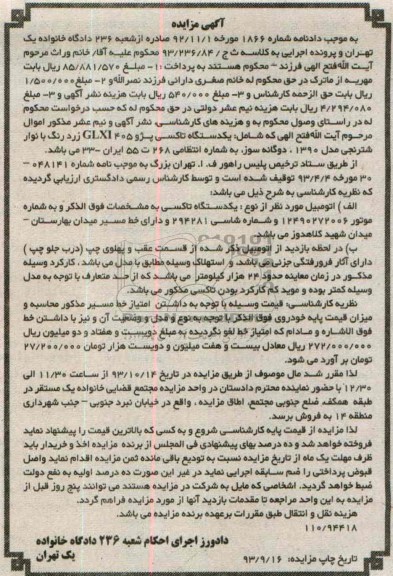 آگهی مزایده
به موجب دادنامه شماره ۱۸۶۶ مورخه ۹۲/۱۱/۱ صادره ازشعبه ۲۳۶ دادگاه خانواده یک
تهران و پرونده اجرایی به کلاسه ث ج / ۹۳/۲۳۶/۸۴ محکوم علیه آقا/ خانم وراث مرحوم
آیت الله‌فتح الهی فرزند – محکوم هستند به پرداخت : ۱- مبلغ ۸۵/۸۸۱/۵۷۰ ریال بابت
مهریه از ماترک در حق محکوم له خانم صغری دارائی فرزند نصرالله و ۲- مبلغ ۱/۵۰۰/۰۰۰
ریال بابت حق الزحمه کارشناس و ۳- مبلغ ۵۴۰/۰۰۰ ریال بابت هزینه نشر آگهی و ۴- مبلغ
۴/۲۹۴/۰۸۰ ریال بابت هزینه نیم عشر دولتی در حق محکوم له که حسب درخواست محکوم
له در راستای وصول محکوم به و هزینه های کارشناسی، نشر آگهی و نیم عشر مذکور اموال
مرحوم آیت الله‌فتح الهی که شامل: یکدستگاه تاکسی پژو ۴۰۵ GLXI زرد رنگ با نوار
شترنجی مدل ۱۳۹۰ ، دوگانه سوز، به شماره انتظامی ۲۶۸ ت ۵۵ ایران –۳۳ می باشد.
از طریق ستاد ترخیص پلیس راهور ف. ا. تهران بزرگ به موجب نامه شماره ۰۴۸۱۴۱ –
۳۰ مورخه ۹۳/۴/۴ توقیف شده است و توسط کارشناس رسمی دادگستری ارزیابی گردیده
که نظریه کارشناسی به شرح ذیل می باشد:
الف ) اتومبیل مورد نظر از نوع : یکدستگاه تاکسی به مشخصات فوق الذکر و به شماره
موتور ۱۲۴۹۰۲۷۲۰۰۶ و شماره شاسی ۲۹۴۲۸۱ و دارای خط مسیر میدان بهارستان –
میدان شهید کلاهدوز می باشد
ب) در لحظه بازدید از اتومبیل ذکر شده از قسمت عقب و پهلوی چپ (درب جلو چپ )
دارای آثار فرورفتگی جزئی می باشد. و استهلاک وسیله مطابق با مدل می باشد. کارکرد وسیله
مذکور در زمان معاینه حدود ۲۴ هزار کیلومتر می باشد که از حد متعارف با توجه به مدل
وسیله کمتر بوده و موید کم کارکرد بودن تاکسی مذکور می باشد.
نظریه کارشناسی: قیمت وسیله با توجه به داشتن امتیاز خط مسیر مذکور محاسبه و
میزان قیمت پایه خودروی فوق الذکر با توجه به نوع و مدل و وضعیت آن و نیز با داشتن خط
فوق الاشاره و مادام که امتیاز خط لغو نگردیده به مبلغ دویست و هفتاد و دو میلیون ریال
۲۷۲/۰۰۰/۰۰۰ ریال معادل بیست و هفت میلیون و دویست هزار تومان ۲۷/۲۰۰/۰۰۰
تومان بر آورد می شود.
لذا مقرر شد مال موصوف از طریق مزایده در تاریخ ۹۳/۱۰/۱۴ از ساعت ۱۱/۳۰ الی
۱۲/۳۰ با حضور نماینده محترم دادستان در واحد مزایده مجتمع قضایی خانواده یک مستقر در
طبقه همکف ضلع جنوبی مجتمع، اطاق مزایده ، واقع در خیابان نبرد جنوبی – جنب شهرداری
منطقه ۱۴ به فروش برسد.
لذا مزایده از قیمت پایه کارشناسی شروع و به کسی که بالاترین قیمت را پیشنهاد نماید
فروخته خواهد شد و ده درصد بهای پیشنهادی فی المجلس از برنده مزایده اخذ و خریدار باید
ظرف مهلت یک ماه از تاریخ مزایده نسبت به تودیع باقی مانده ثمن مزایده اقدام نماید واصل
قبوض پرداختی را ضم سابقه اجرایی نماید در غیر این صورت ده درصد اولیه به نفع دولت
ضبط خواهد گردید. اشخاصی که مایل به شرکت در مزایده هستند می توانند پنج روز قبل از
مزایده به این واحد مراجعه تا مقدمات بازدید آنها از مورد مزایده فراهم گردد.
هزینه نقل و انتقال طبق مقررات برعهده برنده مزایده می باشد.
۱۱۰/۹۴۴۱۸
دادورز اجرای احکام شعبه ۲۳۶ دادگاه خانواده
یک تهران
تاریخ چاپ مزایده: ۹۳/۹/۱۶